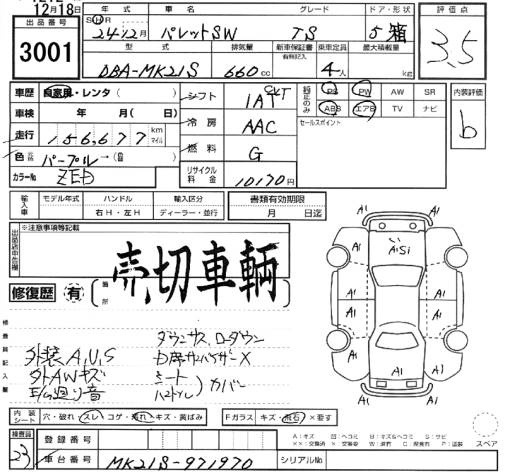 12月18日
出品番号
3001
年式 車名 グレード ドア・形状
S H R 24年12月 パレットSW TS 5 箱
型式 排気量 新車保証書 有無記入 乗車定員 最大積載量
DBA-MK21S 660cc 4人 kg
評価点
3.5
車歴 自家用・レンタ( )
車検 年 月( 日)
走行 156,677 km マイル
色 パープル→( )
カラーNo ZED
シフト IAT CVT
冷房 AAC
燃料 G
リサイクル料金 10170円
純正のみ PS PW AW SR
ABS エアB TV ナビ
セールスポイント
内装評価
b
輸入車 モデル年式 ハンドル 輸入区分
右H・左H ディーラー・並行
書類有効期限
月 日迄
出品店申告欄 ※注意事項等記載
売切車輌
修復歴 有 箇所
検査員記入欄
外装A,U,S
外AWキズ
E/G廻り音
ダウンサス ローダウン
シート
ハンドル カバー
A1 A1
A1Si
A1 A1
A1 A1
A1 A1
A1
A1
内装シート 穴・破れ・スレ・コゲ・汚れ・キズ・黄ばみ
Fガラス キズ・飛石・×要す
スペア
検査員
23
登録番号
車台番号 MK21S-971970 シリアルNo.